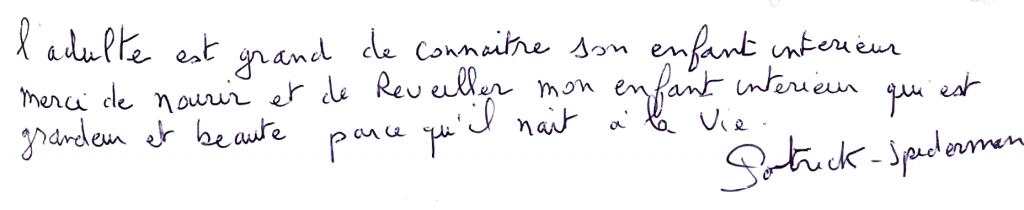 l'adulte est grand de connaitre son enfant interieur
merci de nourir et de Reveiller mon enfant interieur qui est
grandeur et beaute parce qu'il nait a la Vie.
Patrick - Spiderman